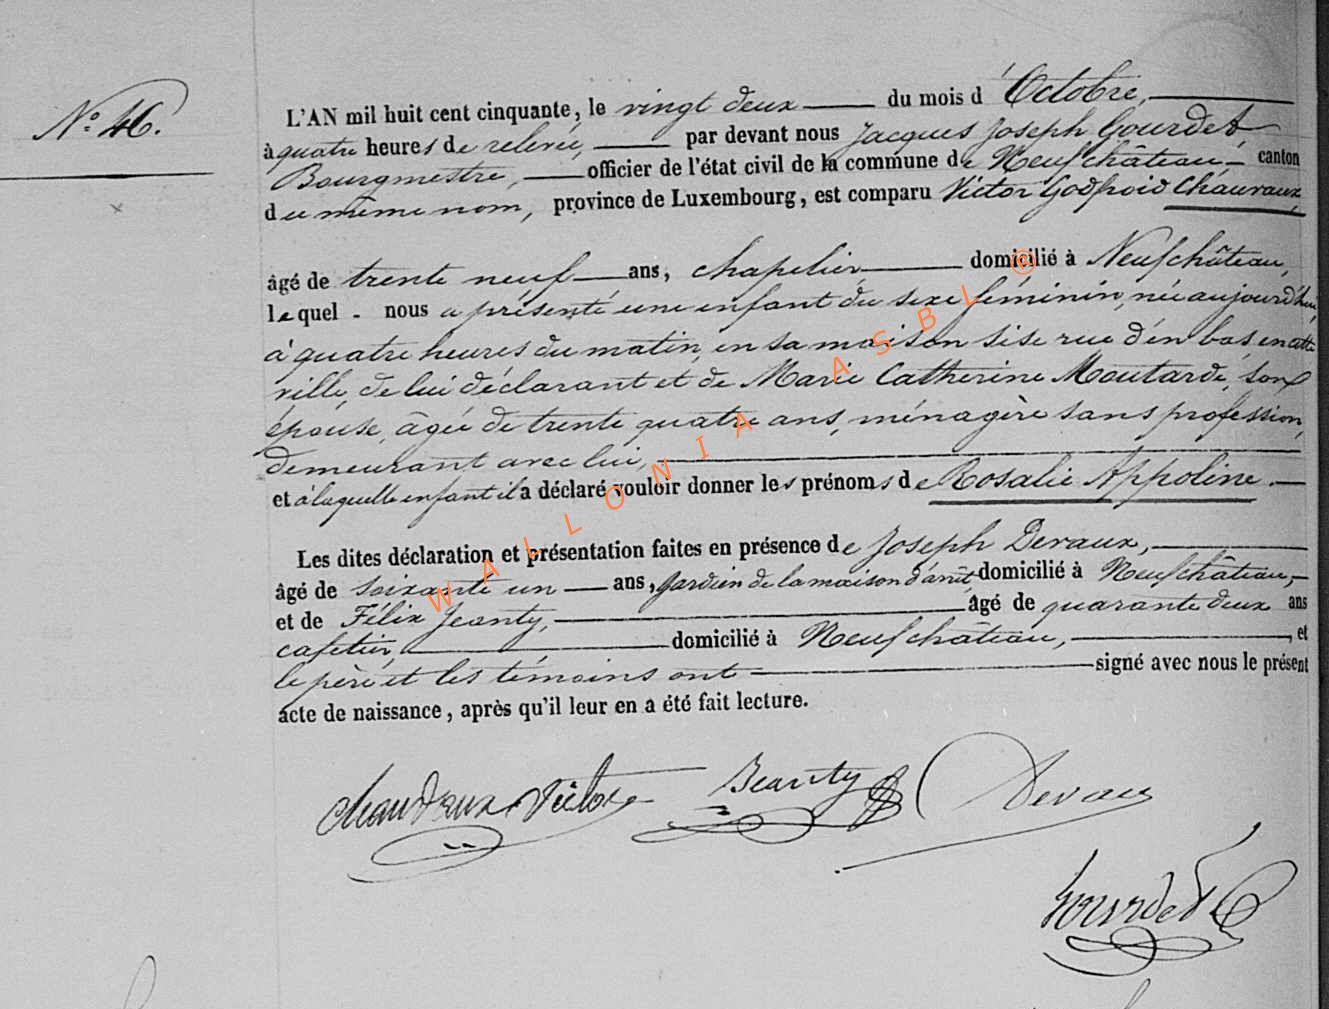 N° 46.
L'AN mil huit cent cinquante, le vingt deux du mois d'Octobre,
à quatre heures de relevée, par devant nous Jacques Joseph Gourdet,
Bourgmestre, officier de l'état civil de la commune de Neufchâteau canton
du même nom, province de Luxembourg, est comparu Victor Godfroid Chauvaux,
âgé de trente neuf ans, chapelier domicilié à Neufchâteau,
lequel - nous a présenté une enfant du sexe féminin, née aujourd'hui,
à quatre heures du matin, en sa maison sise rue d'en bas, en cette
ville, de lui déclarant et de Marie Catherine Moutarde, son
épouse, âgée de trente quatre ans, ménagère sans profession,
demeurant avec lui,
et à laquelle enfant il a déclaré vouloir donner les prénoms de Rosalie Appoline.
Les dites déclaration et présentation faites en présence de Joseph Devaux,
âgé de soixante un ans, gardien de la maison d'arrêt domicilié à Neufchâteau,
et de Félix Jeanty, âgé de quarante deux ans
cafetier, domicilié à Neufchâteau, et
le père et les témoins ont signé avec nous le présent
acte de naissance, après qu'il leur en a été fait lecture.
Victor Jeanty Devaux
Gourdet
WALLONIA ASBL ©